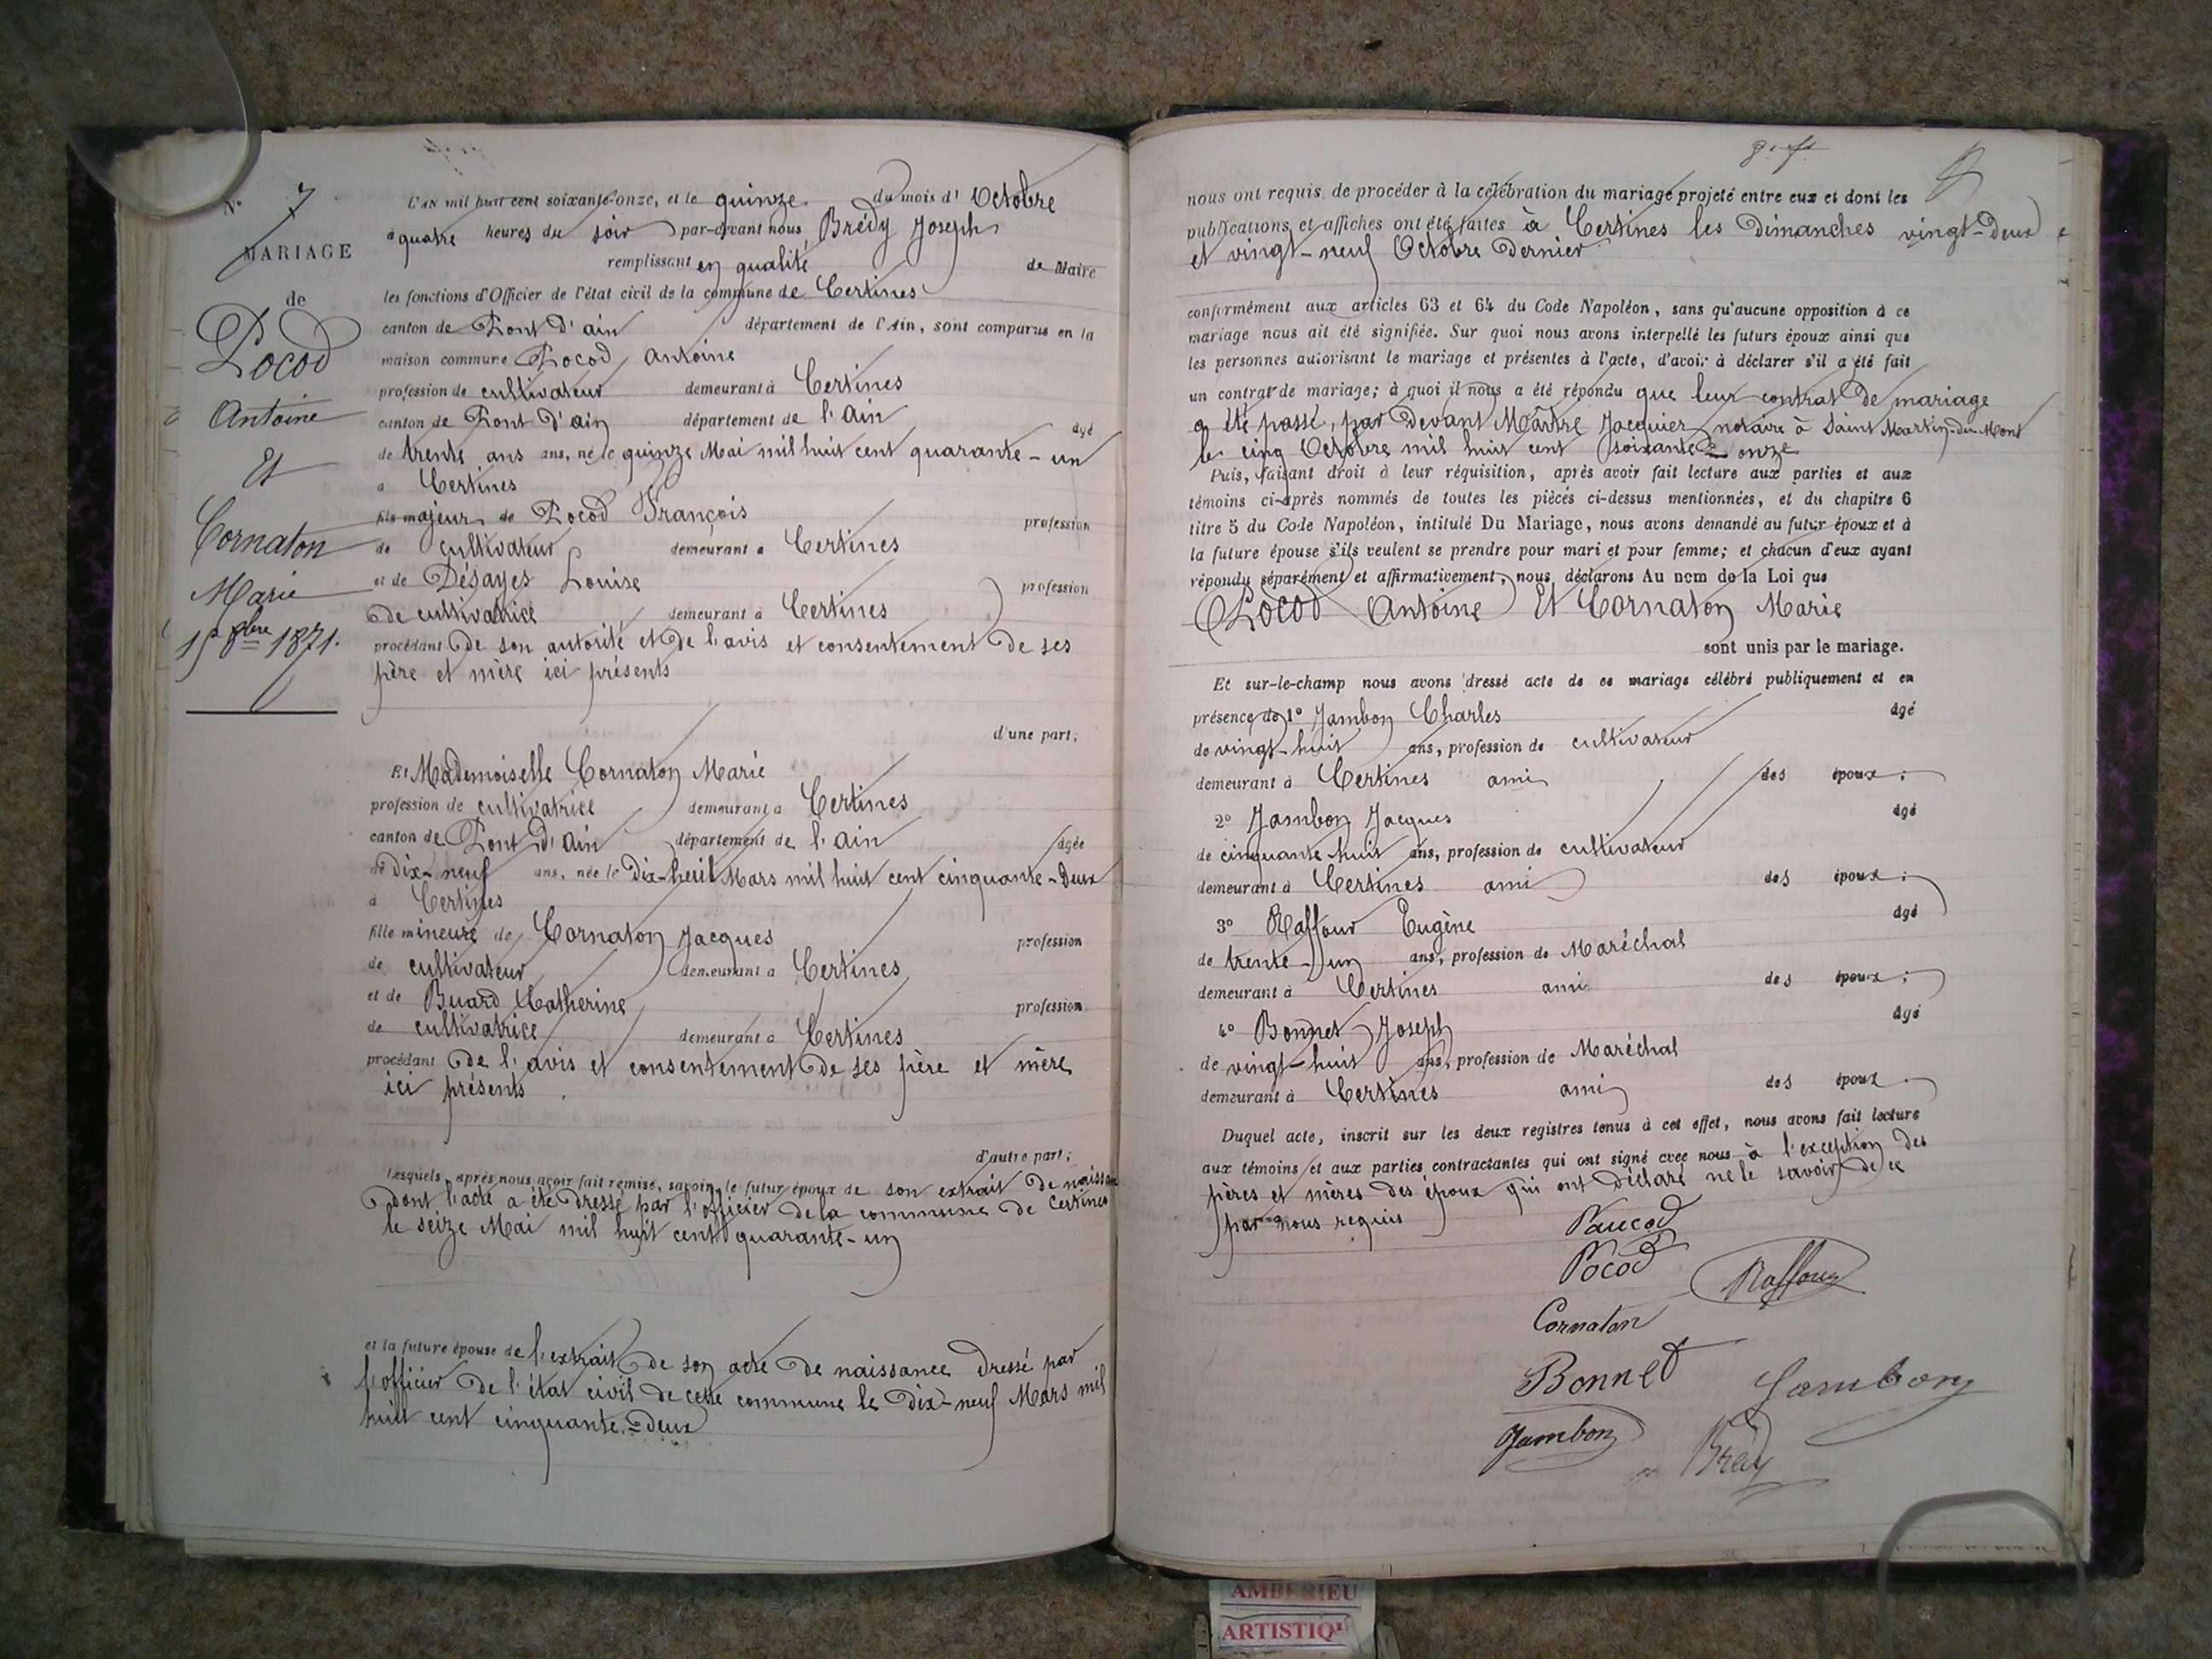 N° 7
MARIAGE
de
Pocod
Antoine
Et
Cornaton
Marie
15 8bre 1871.
L'an mil huit cent soixante-onze, et le quinze du mois d' Octobre
à quatre heures du soir par-devant nous Brédy Joseph
remplissant en qualité de Maire
les fonctions d'Officier de l'état civil de la commune de Certines
canton de Pont d'ain département de l'Ain, sont comparus en la
maison commune Pocod antoine
profession de cultivateur demeurant à Certines
canton de Pont d'ain département de l'ain âgé
de trente ans ans, né le quinze Mai mil huit cent quarante-un
à Certines
fils majeur de Pocod François profession
de cultivateur demeurant à Certines
et de Désayes Louise profession
de cultivatrice demeurant à Certines
procédant de son autorité et de l'avis et consentement de ses
père et mère ici présents
d'une part;
Et Mademoiselle Cornaton Marie
profession de cultivatrice demeurant à Certines
canton de Pont d'ain département de l'ain âgée
de dix-neuf ans, née le Dix-huit Mars mil huit cent cinquante-Deux
à Certines
fille mineure de Cornaton Jacques profession
de cultivateur demeurant à Certines
et de Buard Catherine profession
de cultivatrice demeurant à Certines
procédant de l'avis et consentement de ses père et mère
ici présents
d'autre part;
Lesquels, après nous avoir fait remise, savoir, le futur époux de son extrait de naissance
dont l'acte a été dressé par l'officier de la commune de Certines
le seize Mai mil huit cent quarante-un
et la future épouse de l'extrait de son acte de naissance dressé par
l'officier de l'état civil de cette commune le Dix-neuf Mars mil
huit cent cinquante-deux
8
nous ont requis de procéder à la célébration du mariage projeté entre eux et dont les
publications et affiches ont été faites à Certines les Dimanches vingt-Deux
et vingt-neuf Octobre Dernier
conformément aux articles 63 et 64 du Code Napoléon, sans qu'aucune opposition à ce
mariage nous ait été signifiée. Sur quoi nous avons interpellé les futurs époux ainsi que
les personnes autorisant le mariage et présentes à l'acte, d'avoir à déclarer s'il a été fait
un contrat de mariage; à quoi il nous a été répondu que leur contrat de mariage
a été passé, par Devant Maître Jacquier notaire à Saint Martin-du-Mont
le cinq Octobre mil huit cent soixante-onze
Puis, faisant droit à leur réquisition, après avoir fait lecture aux parties et aux
témoins ci-après nommés de toutes les pièces ci-dessus mentionnées, et du chapitre 6
titre 5 du Code Napoléon, intitulé Du Mariage, nous avons demandé au futur époux et à
la future épouse s'ils veulent se prendre pour mari et pour femme; et chacun d'eux ayant
répondu séparément et affirmativement, nous déclarons Au nom de la Loi que
Pocod Antoine Et Cornaton Marie
sont unis par le mariage.
Et sur-le-champ nous avons dressé acte de ce mariage célébré publiquement et en
présence de 1° Jambon Charles âgé
de vingt-huit ans, profession de cultivateur
demeurant à Certines ami des époux;
2° Jambon Jacques âgé
de cinquante huit ans, profession de cultivateur
demeurant à Certines ami des époux;
3° Raffour Eugène âgé
de trente-un ans, profession de Maréchal
demeurant à Certines ami des époux;
4° Bonnet Joseph âgé
de vingt-huit ans, profession de Maréchal
demeurant à Certines ami des époux.
Duquel acte, inscrit sur les deux registres tenus à cet effet, nous avons fait lecture
aux témoins et aux parties contractantes qui ont signé avec nous à l'exception des
pères et mères des époux qui ont déclaré ne le savoir de ce
par nous requis
Paucod
Pocod
Raffour
Cornaton
Bonnet
Jambon
Jambon
Brédy
AMBERIEU
ARTISTIQ